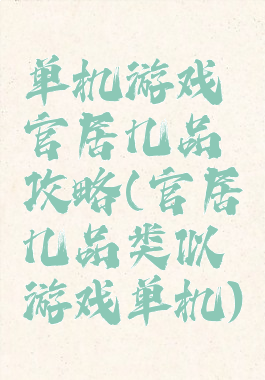 单机游戏
官居九品
攻略(官居
九品类似
游戏单机)